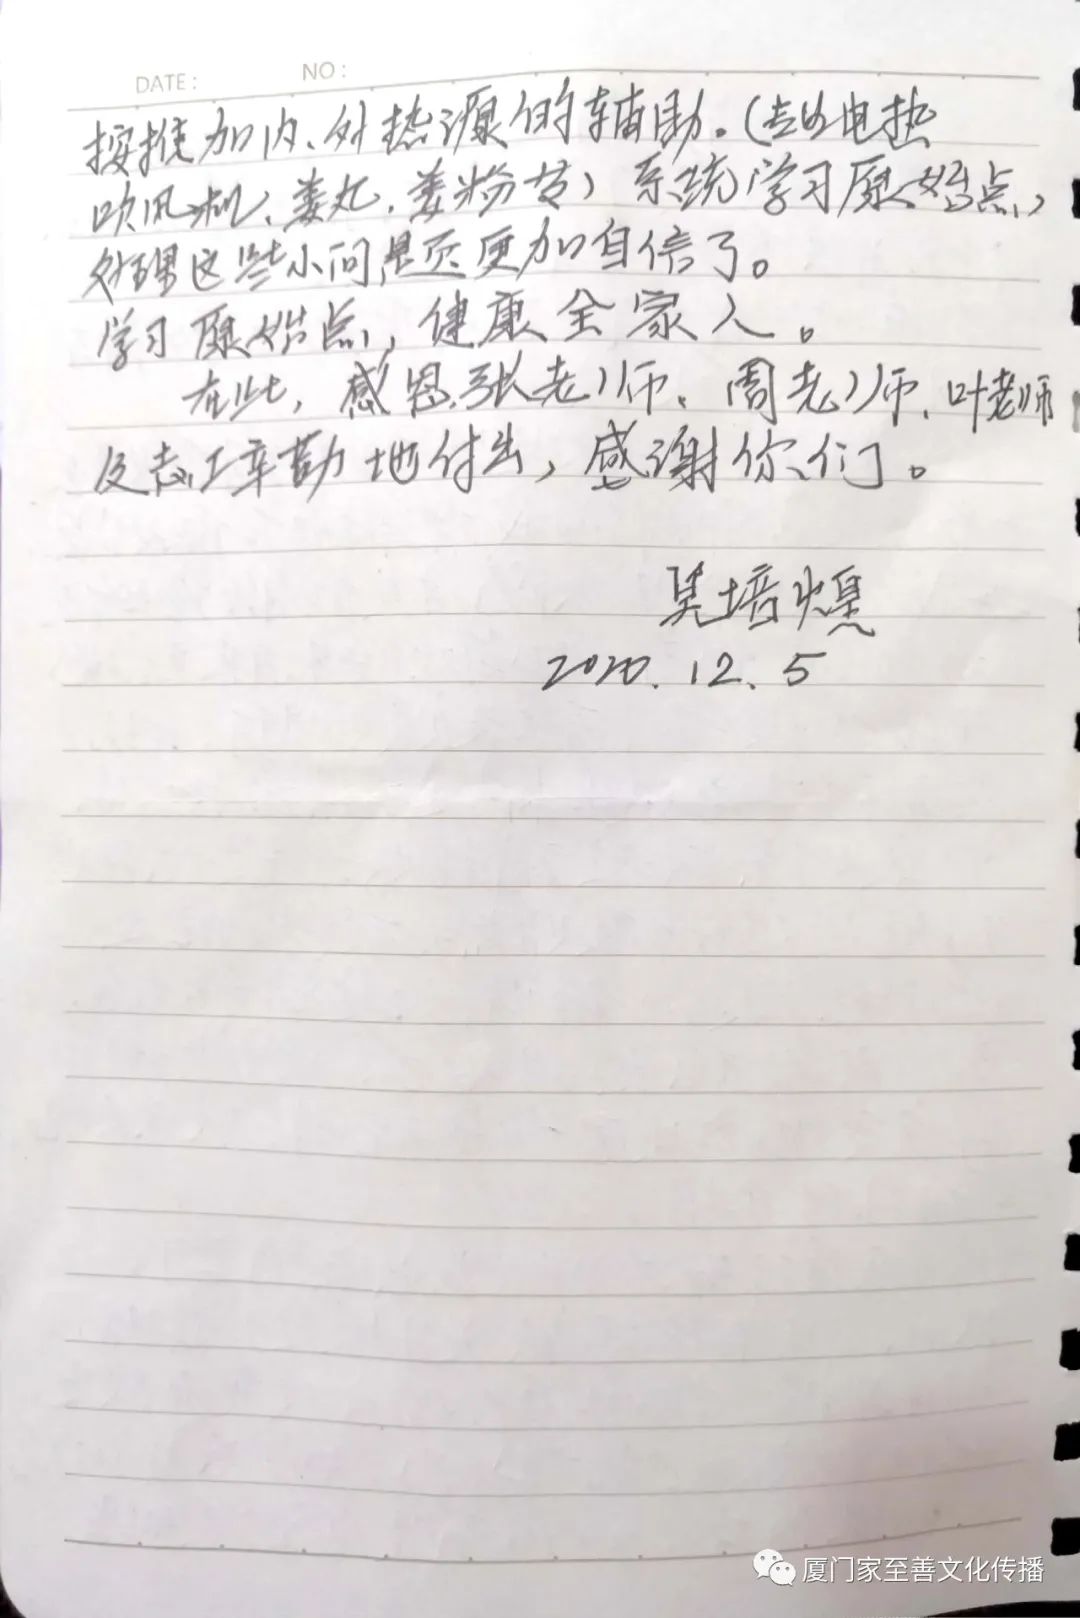 DATE: NO:
按推加内、外热源的辅助。(电热
吹风机、姜丸、姜粉等)系统学习原始点,
处理这些小问题更加自信了。
学习原始点,健康全家人。
在此,感恩张老师、周老师、叶老师
及志工辛勤地付出,感谢你们。
吴培煌
2020.12.5
厦门家至善文化传播